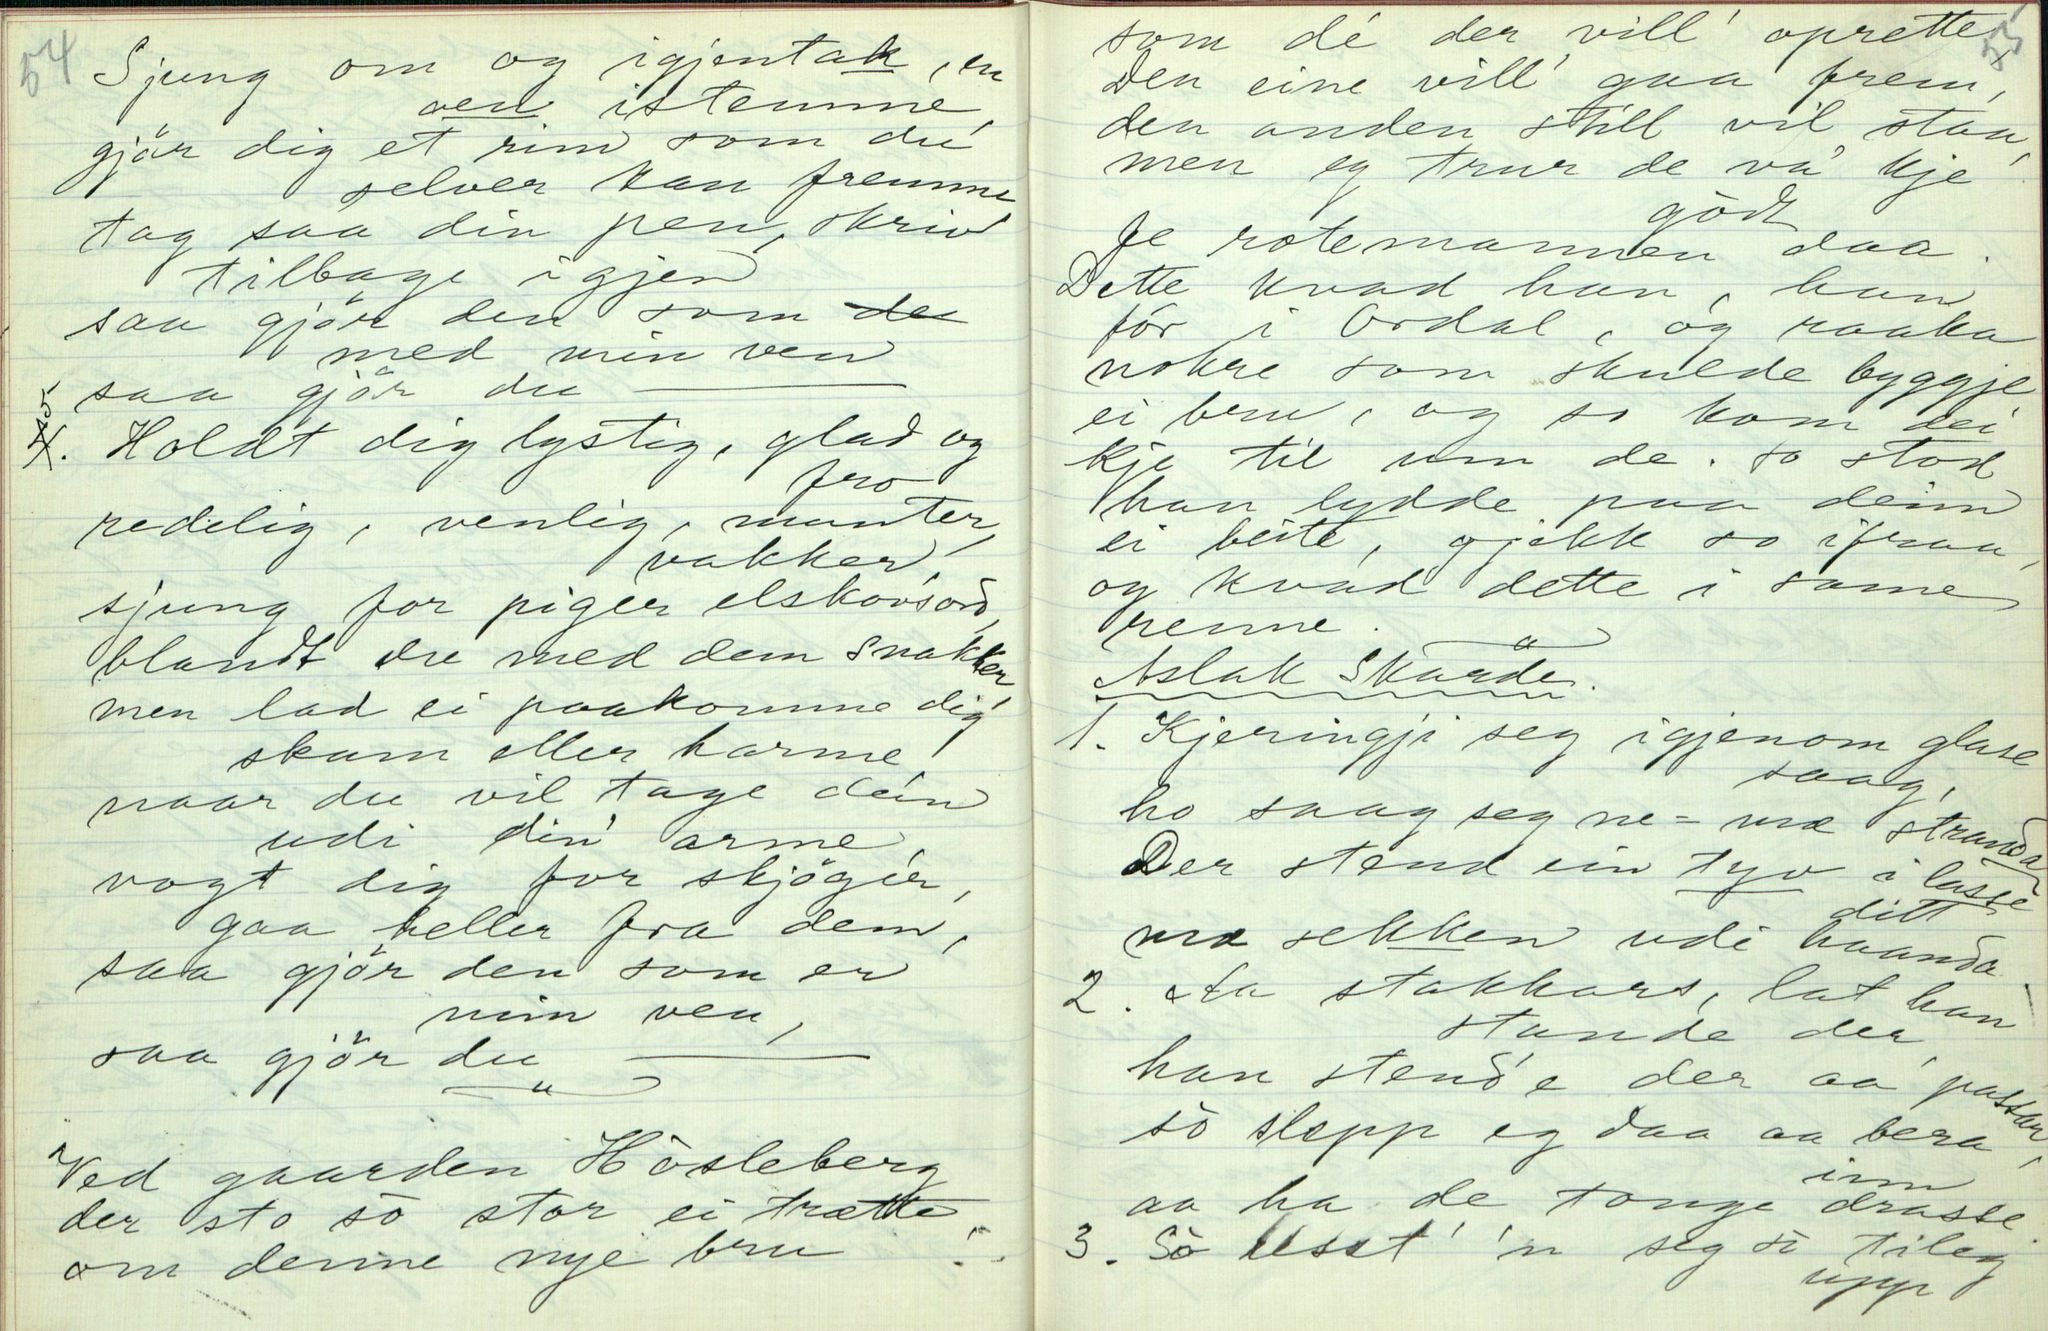 54
Sjung om og igjentak, en
ven istemme,
gjör dig et rim som du
selver kan fremme
tag saa din pen, skriv
tilbage igjen
saa gjör den som de
med min ven
saa gjör du ———
X. Holdt dig lystig, glad og
fro
redelig, venlig, munter,
vakker,
sjung for piger elskovsord,
blandt du med dem snakker,
men lad ei paakomme dig
skam eller harme
naar du vil tage dein
udi din arme,
vogt dig for skjöger,
gaa heller fra dem,
saa gjör den som er
min ven,
saa gjör du ———
Ved gaarden Hösleberg
der sto so stor ei trætte
om denne nye bru
55
som dé der vill' oprette.
Den eine vill' gaa frem,
den anden still vil staa,
men eg trur de va' kje
godt
Je rotemannen daa.
Dette kvad han, han
fór i Ordal, og raaka
nokre som skulde byggje
ei bru, og so kom dei
kje til um de. so stod
han lydde paa deim
ei beite, gjekk so ifraa,
og kvad dette i same
renne.
Aslak Skarde.
1. Kjeringji seg igjenom glase
saag,
ho saag seg ne-mæ stranda
Der stend ein tyv i lasse
ditt
mæ sekken udi haanda
2. Aa stakkars, lat han
stande der,
han stend'e der aa passar,
so slepp eg daa aa bera
inn
aa ha de tonge drasse.
3. So lesst' 'n seg so tileg
upp